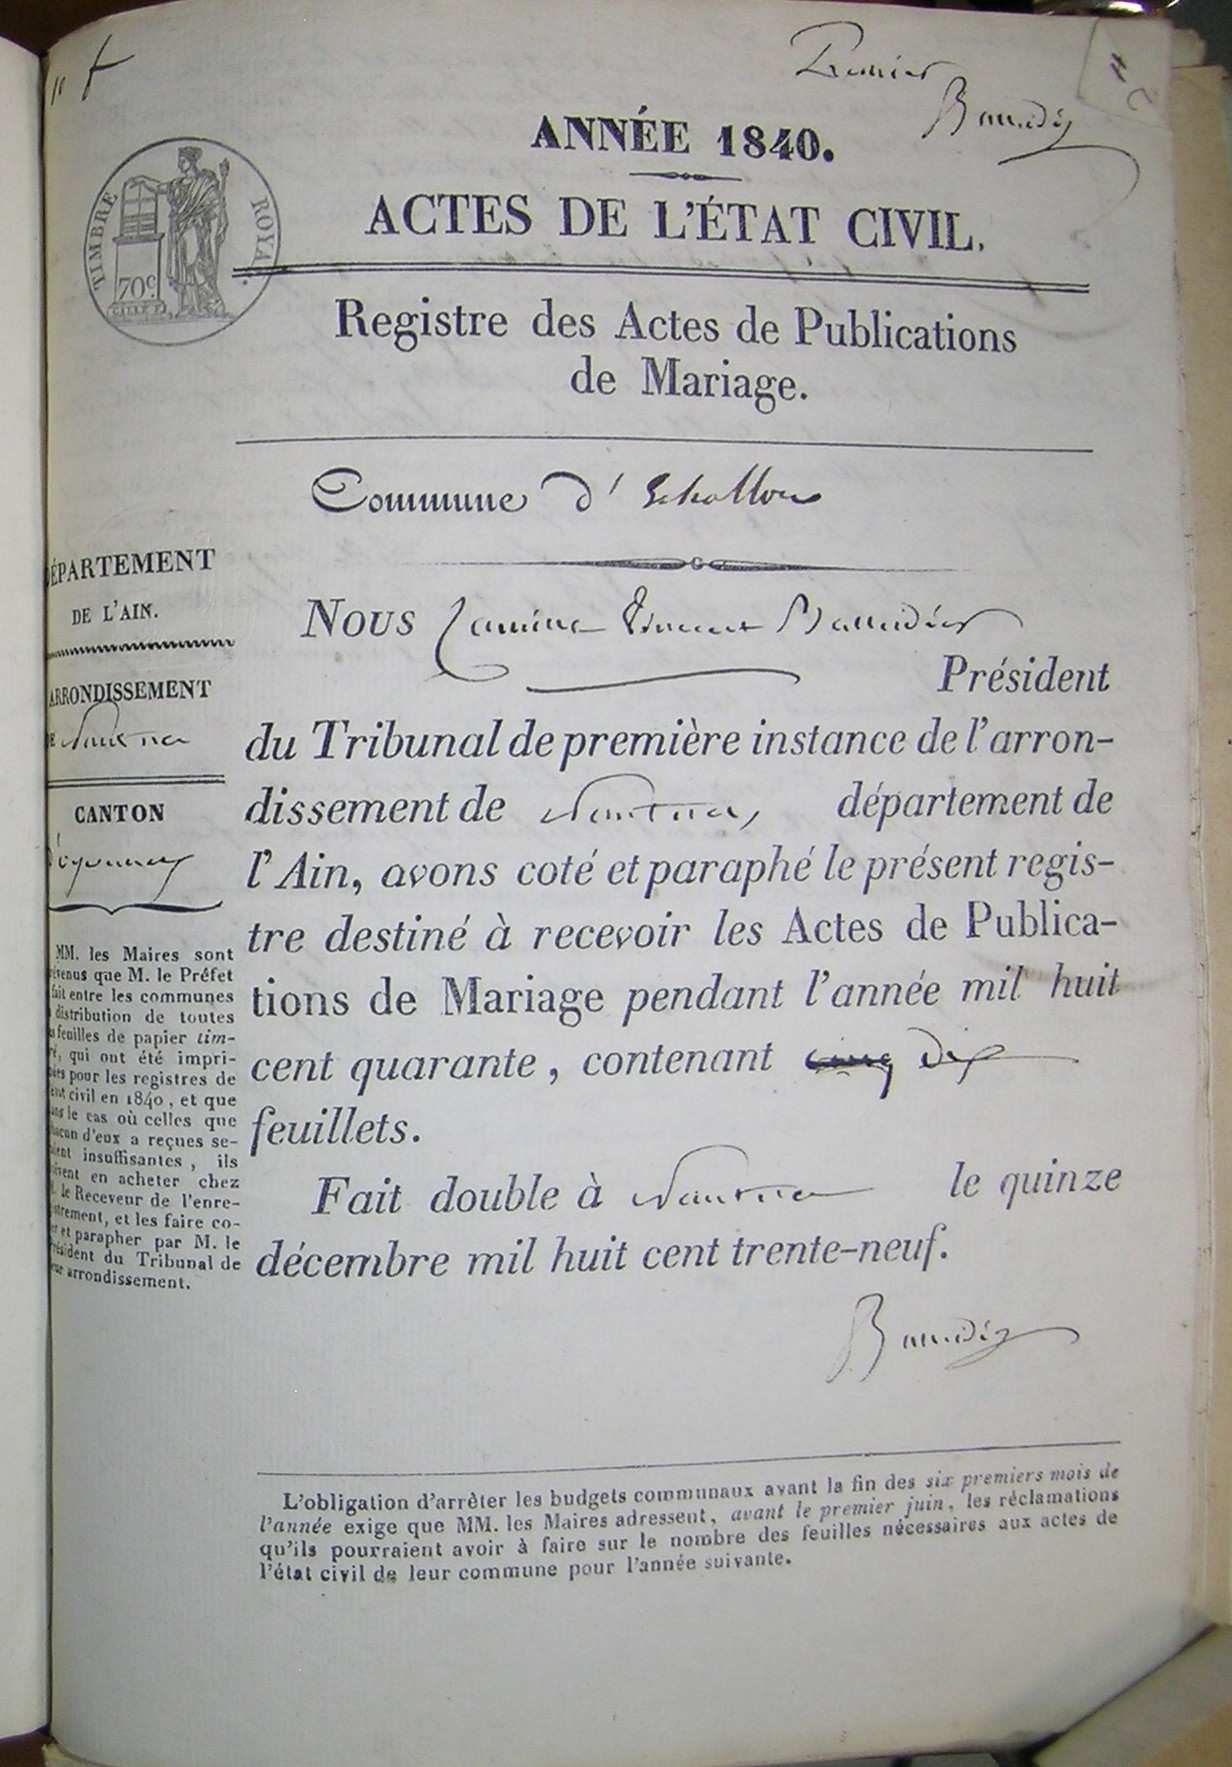 Premier
Baudéz
ANNÉE 1840.
ACTES DE L'ÉTAT CIVIL.
TIMBRE ROYAL.
70c.
Registre des Actes de Publications
de Mariage.
Commune d' Echallon
DÉPARTEMENT
DE L'AIN.
ARRONDISSEMENT
DE Nantua
CANTON
d'Oyonnax
MM. les Maires sont
prévenus que M. le Préfet
fait entre les communes
la distribution de toutes
les feuilles de papier tim-
bré, qui ont été impri-
mées pour les registres de
l'état civil en 1840, et que
dans le cas où celles que
chacun d'eux a reçues se-
raient insuffisantes, ils
doivent en acheter chez
M. le Receveur de l'enre-
gistrement, et les faire co-
ter et parapher par M. le
Président du Tribunal de
leur arrondissement.
Nous Vincent
Président
du Tribunal de première instance de l'arron-
dissement de Nantua, département de
l'Ain, avons coté et paraphé le présent regis-
tre destiné à recevoir les Actes de Publica-
tions de Mariage pendant l'année mil huit
cent quarante, contenant cinq dix
feuillets.
Fait double à Nantua le quinze
décembre mil huit cent trente-neuf.
L'obligation d'arrêter les budgets communaux avant la fin des six premiers mois de
l'année exige que MM. les Maires adressent, avant le premier juin, les réclamations
qu'ils pourraient avoir à faire sur le nombre des feuilles nécessaires aux actes de
l'état civil de leur commune pour l'année suivante.